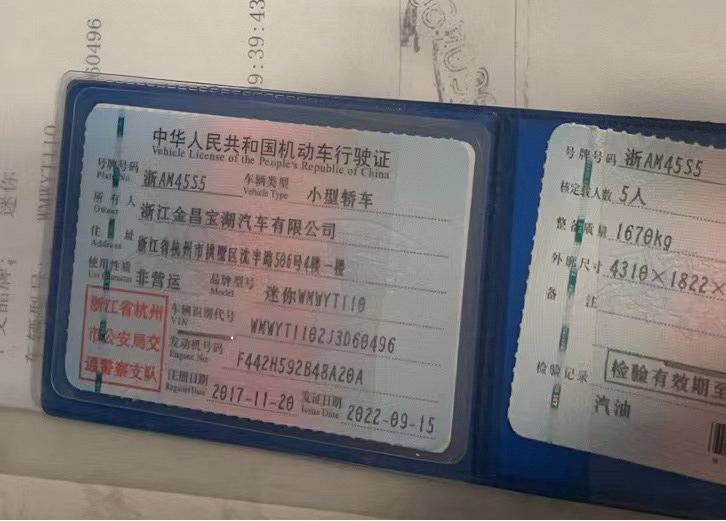 60496
9:39:43
迷你
WMWYT110
中华人民共和国机动车行驶证
Vehicle License of the People's Republic of China
号牌号码 浙AM45S5 车辆类型 小型轿车
Plate No. Vehicle Type
所有人 浙江金昌宝湖汽车有限公司
Owner
住址 浙江省杭州市拱墅区沈半路506号4幢一楼
Address
使用性质 非营运 品牌型号 迷你WMWYT110
Use Character Model
浙江省杭州
市公安局交
通警察支队
车辆识别代号 WMWYT1102J3D60496
VIN
发动机号码 F442H592B48A20A
Engine No.
注册日期 2017-11-20 发证日期 2022-09-15
Register Date Issue Date
号牌号码 浙AM45S5
核定载人数 5人
整备质量 1670kg
外廓尺寸 4310×1822×
备注
检验记录 检验有效期至
汽油